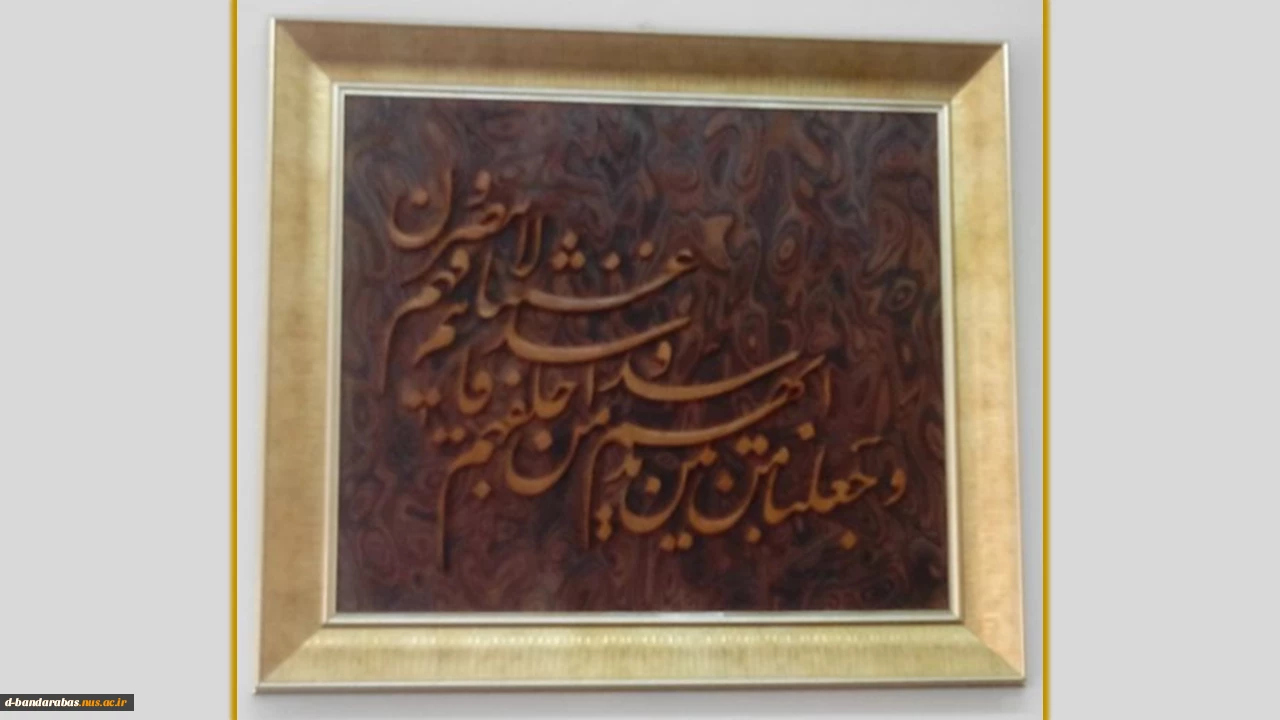 و جعلنا من بین
ایدیهم سدا و من خلفهم
سدا فاغشیناهم
فهم لا یبصرون
d-bandarabas.nus.ac.ir